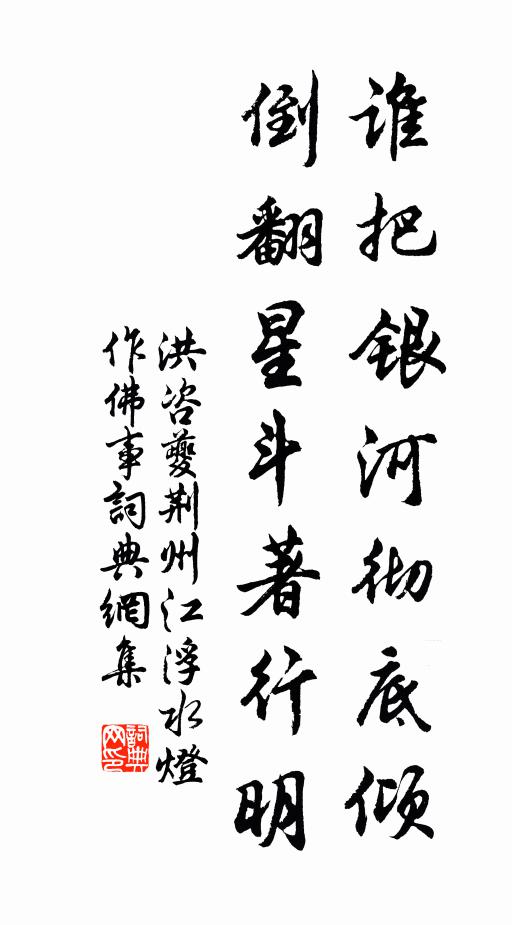 谁把银河彻底倾
倒翻星斗著行明
洪咨夔荆州江浮水燈
作佛事詞典網集
詞典网印